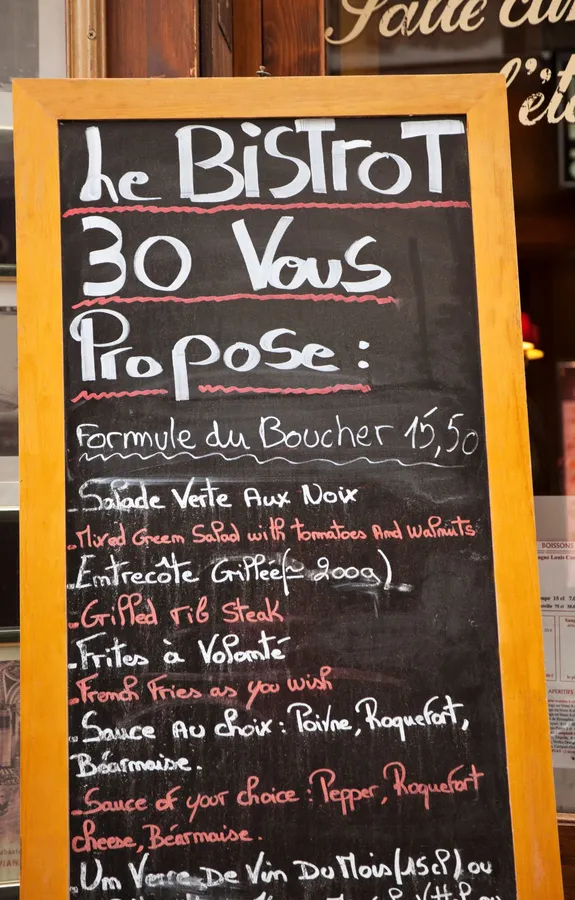 Salle
l'ét
Le BiSTroT
30 Vous
Propose :
Formule du Boucher 15,50
-Salade Verte Aux Noix
-Mixed Green Salad with tomatoes And Walnuts
-Entrecôte Grillée(≃ 200g)
-Grilled rib Steak
-Frites à Volonté
-French Fries as you wish
-Sauce Au choix : Poivre, Roquefort,
Béarnaise.
-Sauce of your choice : Pepper, Roquefort
cheese, Béarnaise.
-Um Verre De Vin Du Mois(15cl) ou
BOISSONS
APERITIFS